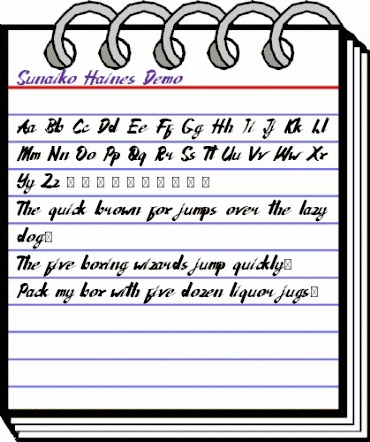 Sunaiko Haines Demo
Aa Bb Cc Dd Ee Ff Gg Hh Ii Jj Kk Ll
Mm Nn Oo Pp Qq Rr Ss Tt Uu Vv Ww Xx
Yy Zz □ □ □ □ □ □ □ □ □ □
The quick brown fox jumps over the lazy
dog□
The five boxing wizards jump quickly□
Pack my box with five dozen liquor jugs□